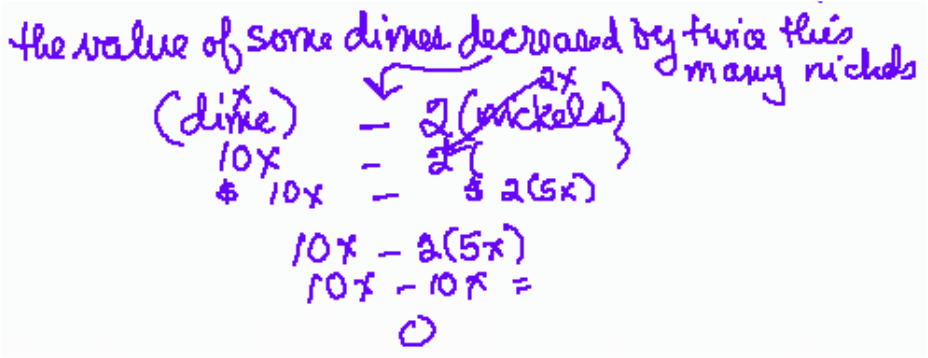 the value of some dimes decreased by twice this
many nickels
x 2x
(dime) - 2(nickels)
10x - 2( )
$ 10x - $ 2(5x)
10x - 2(5x)
10x - 10x =
0